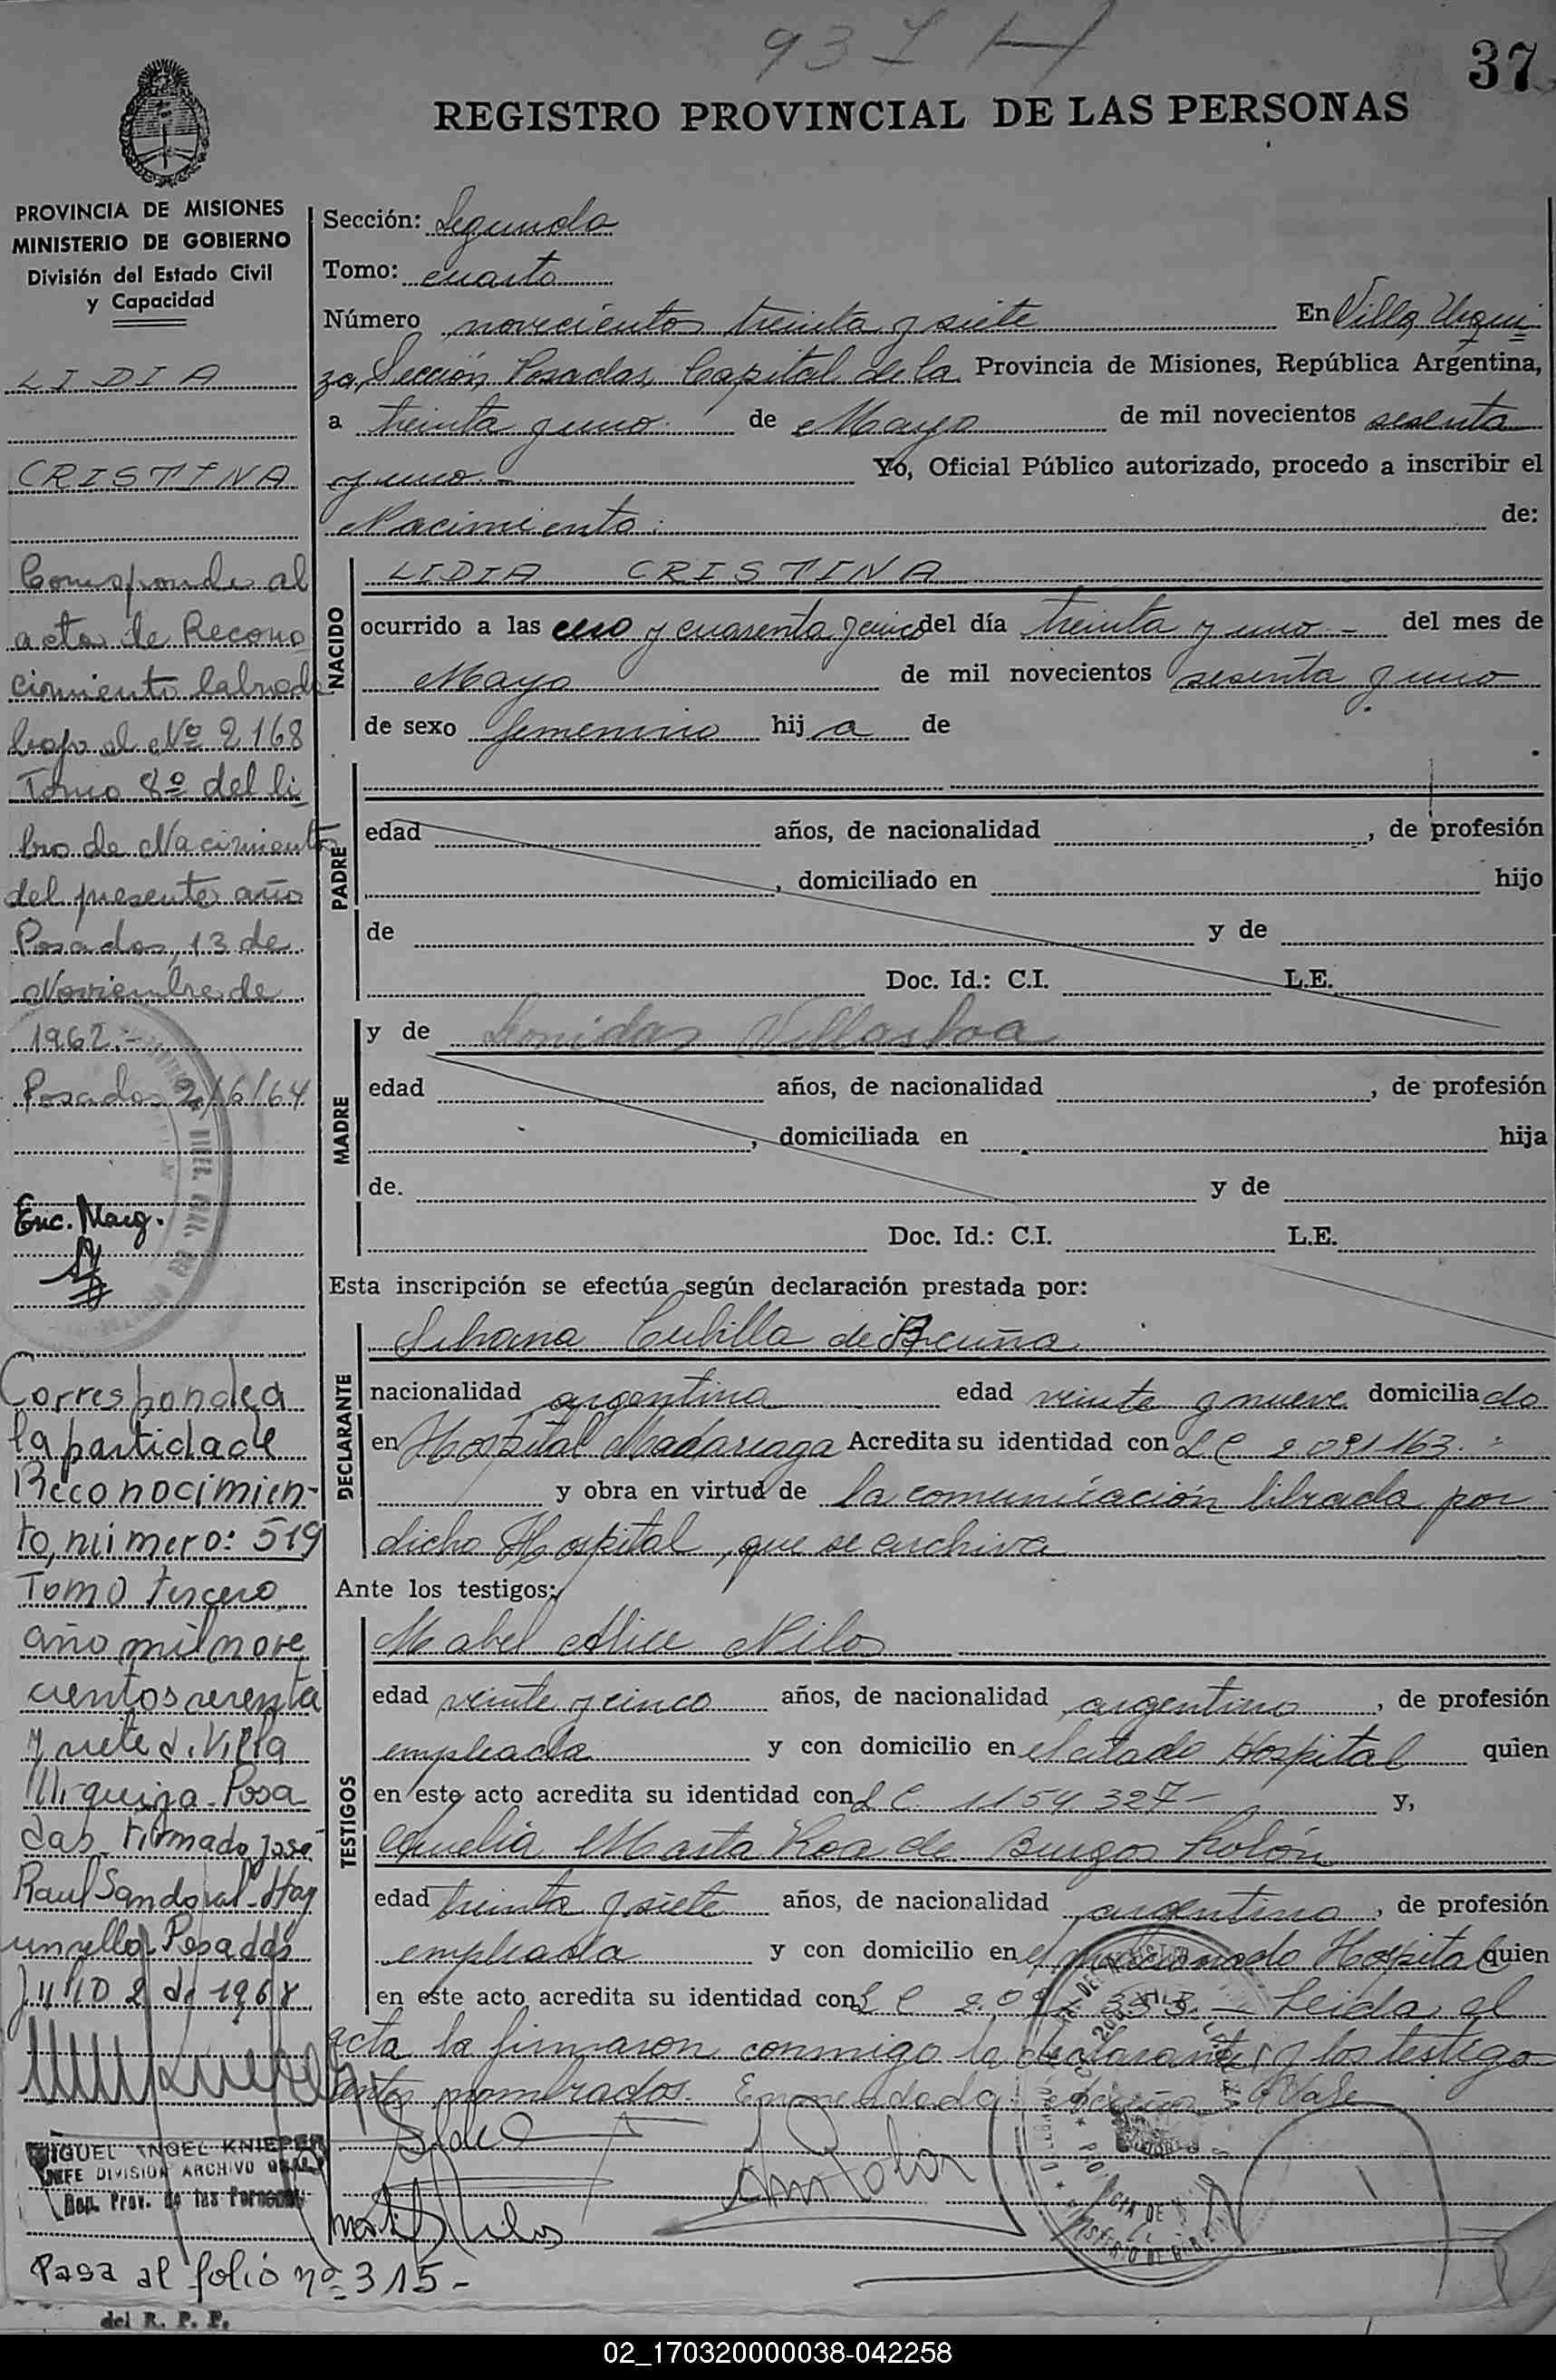 937
37
REGISTRO PROVINCIAL DE LAS PERSONAS
PROVINCIA DE MISIONES
MINISTERIO DE GOBIERNO
División del Estado Civil
y Capacidad
LIDIA
CRISTINA
Corresponde al
acta de Recono
cimiento labrada
bajo el Nº 2168
Tomo 8º del li
bro de Nacimiento
del presente año
Posadas, 13 de
Noviembre de
1962.-
Posadas 2/6/64
Enc. Marg.
Corresponde a
la partida de
Reconocimien-
to, número: 519
Tomo tercero,
año mil nove
cientos sesenta
y siete d. Villa
Urquiza - Posa
das. Firmado José
Raul Sandoval - Hay
un sello Posadas
Julio 2 de 1968
MIGUEL ANGEL KNIEPER
JEFE DIVISION ARCHIVO GRAL.
Reg. Prov. de las Personas
Pasa al folio nº 315-
del R. P. P.
Sección: Segunda
Tomo: cuarto
Número novecientos treinta y siete En Villa Urqui
za, Sección Posadas, Capital de la Provincia de Misiones, República Argentina,
a treinta y uno de Mayo de mil novecientos sesenta
y uno.- Yo, Oficial Público autorizado, procedo a inscribir el
Nacimiento: de:
NACIDO
LIDIA CRISTINA
ocurrido a las cero y cuarenta y cinco del día treinta y uno - del mes de
Mayo de mil novecientos sesenta y uno
de sexo femenino hija de
PADRE
edad años, de nacionalidad , de profesión
, domiciliado en hijo
de y de
Doc. Id.: C.I. L.E.
MADRE
y de Leonidas Villasboa
edad años, de nacionalidad , de profesión
, domiciliada en hija
de. y de
Doc. Id.: C.I. L.E.
Esta inscripción se efectúa según declaración prestada por:
DECLARANTE
Silvana Cubilla de Acuña
nacionalidad argentina edad veinte y nueve domiciliado
en Hospital Madariaga Acredita su identidad con L C 2.091163.
y obra en virtud de la comunicación librada por
dicho Hospital, que se archiva
Ante los testigos:
TESTIGOS
Mabel Alice Nilos
edad veinte y cinco años, de nacionalidad argentina, de profesión
empleada y con domicilio en el citado Hospital quien
en este acto acredita su identidad con L C 1154 327- y,
Amelia Marta Roa de Burgos Lolón
edad treinta y siete años, de nacionalidad argentina, de profesión
empleada y con domicilio en el mencionado Hospital quien
en este acto acredita su identidad con L C - Leida el
acta la firmaron conmigo la declarante y los testigo
antes nombrados. Enmendado: Acuña. Vale
02_170320000038-042258